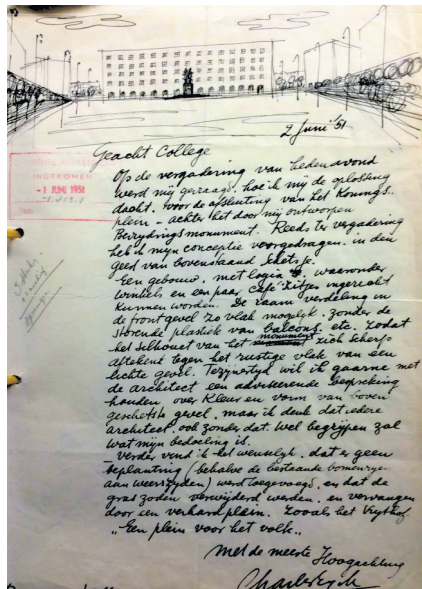 2 Juni '51
INGEKOMEN
-1 JUNI 1951
Geacht College
Op de vergadering van heden avond
werd mij gevraagd, hoe ik mij de oplossing
dacht, voor de afsluiting van het Konings-
plein - achter het door mij ontworpen
Bevrijdingsmonument. Reeds te vergadering
heb ik mijn conceptie voorgedragen in den
geest van bovenstaand schetsje.
Een gebouw, met logia, waaronder
winkels en een paar café zitjes ingericht
kunnen worden. De raam verdeling in
de front gevel zo vlak mogelijk, zonder de
storende plastiek van balcons, etc. Zodat
het silhouet van het monument zich scherp
aftekent tegen het rustige vlak van een
lichte gevel. Tezijnertijd wil ik gaarne met
de architect een adviserende bespreking
houden over kleur en vorm van boven
geschetste gevel, maar ik denk dat iedere
architect, ook zonder dat, wel begrijpen zal
wat mijn bedoeling is.
- Verder vind ik het wenselijk, dat er geen
beplanting (behalve de bestaande bomenrye
aan weerszyden) werd toegevoegd, en dat de
gras zoden verwijderd werden, en vervangen
door een verhard plein. Zooals het Vrijthof.
"Een plein voor het volk"
Met de meeste Hoogachting
Charles Eyck